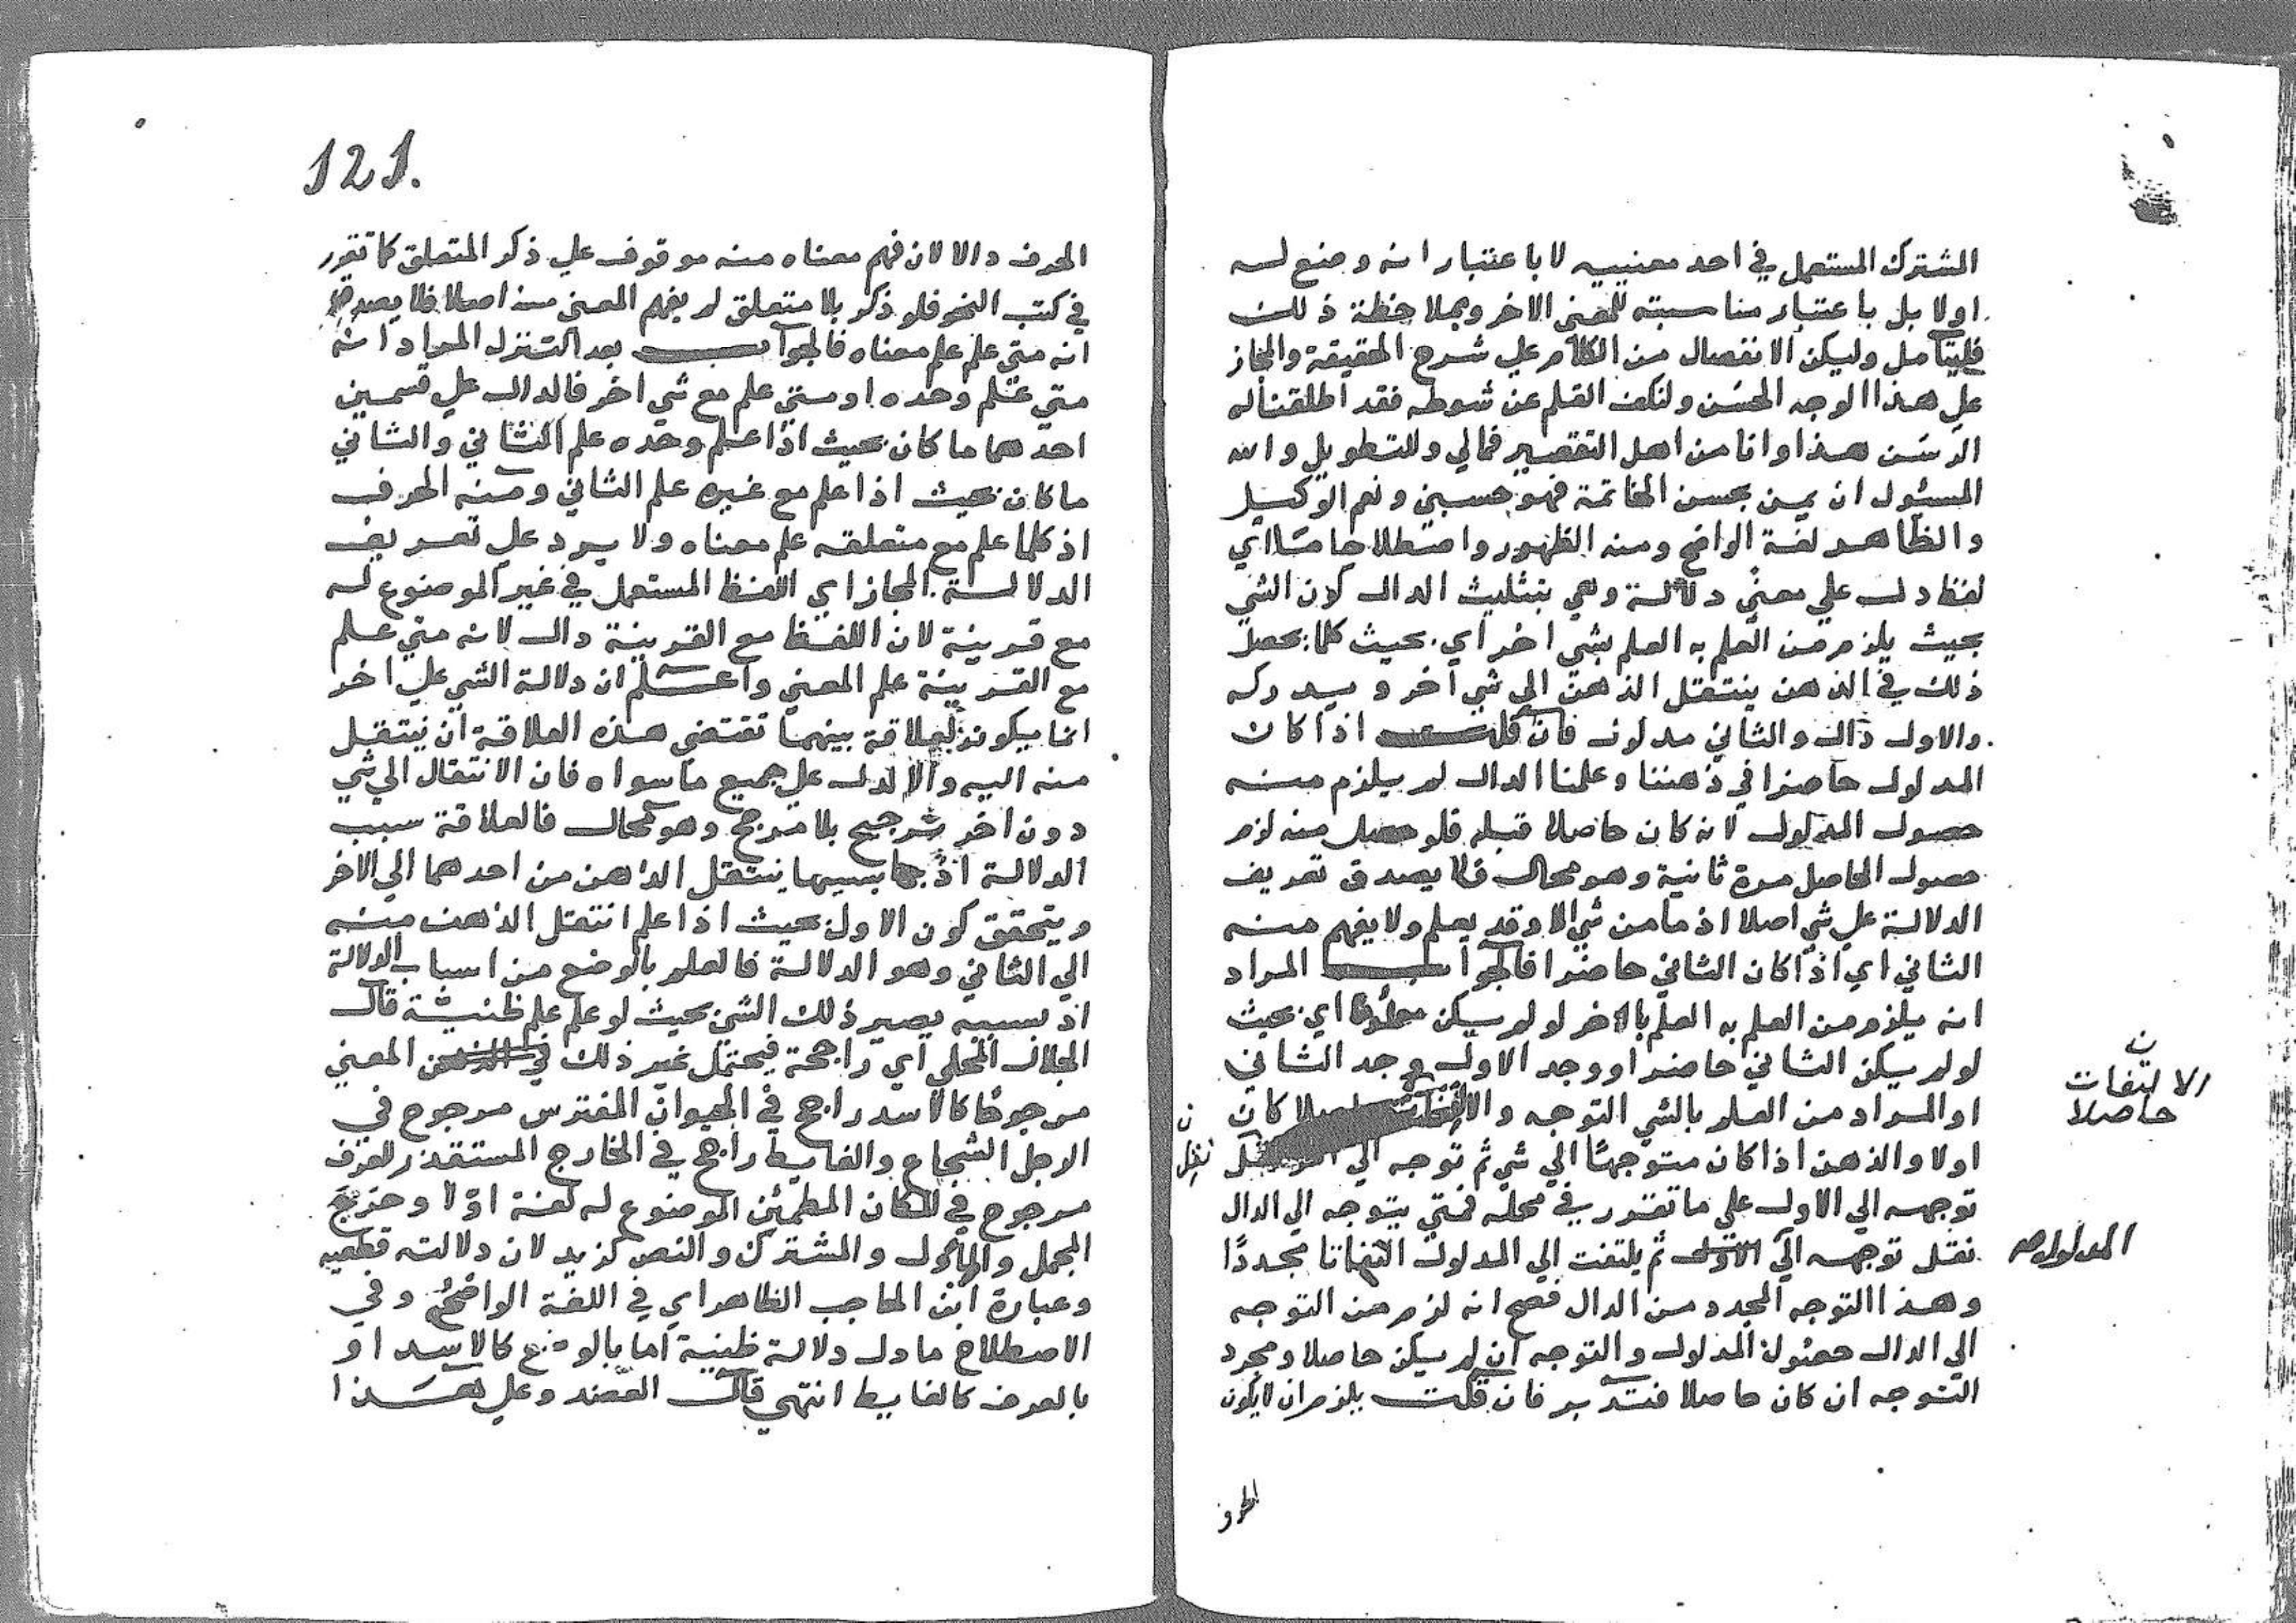 الشترك المستعمل في احد معنييه لا باعتبار انه وضع له
اولا بل باعتبار مناسبته للمعنى الاخر وبملاحظة ذلك
فليتامل وليكن الانفصال من الكلام علي شرح الحقيقة والمجاز
علي هذا الوجه الحسن ولنكف القلم عن شوطه فقد اطلقنا له
الرسن هذا وانا من اهل التقصير فمالي وللتطويل والله
المسئول ان يمن بحسن الخاتمة فهو حسبي ونعم الوكيل
والظاهر لغة الواضح ومنه الظهور واصطلاحا ما اي
لفظ دل علي معني دلالة وهي بتثليث الدال كون الشي
بحيث يلزم من العلم به العلم بشي اخر اي بحيث كلما حصل
ذلك في الذهن ينتقل الذهن الي شي اخر ويدركه
والاول دال والثاني مدلول فان قلت اذا كان
المدلول حاضرا في ذهننا وعلمنا الدال لم يلزم منه
حصول المدلول لانه كان حاصلا قبله فلو حصل منه لزم
حصول الحاصل مرة ثانية وهو محال فلا يصدق تعريف
الدلالة علي شي اصلا اذ ما من شي الا وقد يعلم ولا يفهم منه
الثاني اي اذا كان الثاني حاضرا فالجواب المراد
انه يلزم من العلم به العلم بالاخر لو لم يكن اي بحيث
لو لم يكن الثاني حاضرا ووجد الاول وجد الثاني
الالتفات
حاصلا
او المراد من العلم بالشي التوجه والالتفات كان
اولا والذهن اذا كان متوجها الي شي ثم توجه الي
توجهه الي الاول علي ما تقرر في محله فمتي يتوجه الي الدال
المدلول صح
نقل توجهه الي الاول ثم يلتفت الي المدلول التفاتا مجددا
وهذا التوجه المجدد من الدال فصح انه لزم من التوجه
الي الدال حصول المدلول والتوجه ان لم يكن حاصلا ومجرد
التوجه ان كان حاصلا فتدبر فان قلت يلزم ان لا يكون
الحرف
121.
الحرف دالا لان فهم معناه منه موقوف علي ذكر المتعلق كما تقرر
في كتب النحو فلو ذكر بلا متعلق لم يفهم المعنى منه اصلا فلا يصدق
انه متي علم علم معناه فالجواب بعد التنزل المراد انه
متي علم وحده او متي علم مع شي اخر فالدال علي قسمين
احدهما ما كان بحيث اذا علم وحده علم الثاني والثاني
ما كان بحيث اذا علم مع غيره علم الثاني ومنه الحرف
اذ كلما علم مع متعلقه علم معناه ولا يرد علي تعريف
الدلالة المجاز اي اللفظ المستعمل في غير الموضوع له
مع قرينة لان اللفظ مع القرينة دال لانه متي علم
مع القرينة علم المعني واعلم ان دلالة الشي علي اخر
انما يكون لعلاقة بينهما تقتضي هذه العلاقة ان ينتقل
منه اليه والا لدل علي جميع ما سواه فان الانتقال الي شي
دون اخر ترجيح بلا مرجح وهو محال فالعلاقة سبب
الدلالة اذ بسببها ينتقل الذهن من احدهما الي الاخر
ويتحقق كون الاول بحيث اذا علم انتقل الذهن منه
الي الثاني وهو الدلالة فالعلم بالوضع من اسباب الدلالة
اذ بسببه يصير ذلك الشي بحيث لو علم علم ظنية قال
الجلال المحلي اي راجحة فيحتمل غير ذلك المعني
مرجوحا كالاسد راجح في الحيوان المفترس مرجوح في
الرجل الشجاع والغايط راجح في الخارج المستقذر للعرف
مرجوح في المكان المطمئن الموضوع له لغة اولا وخرج
المجمل والمأول والمشترك والنص كزيد لان دلالته قطعيه
وعبارة ابن الحاجب الظاهر اي في اللغة الواضح وفي
الاصطلاح ما دل دلالة ظنية اما بالوضع كالاسد او
بالعرف كالغايط انتهي قال العضد وعلي هذا